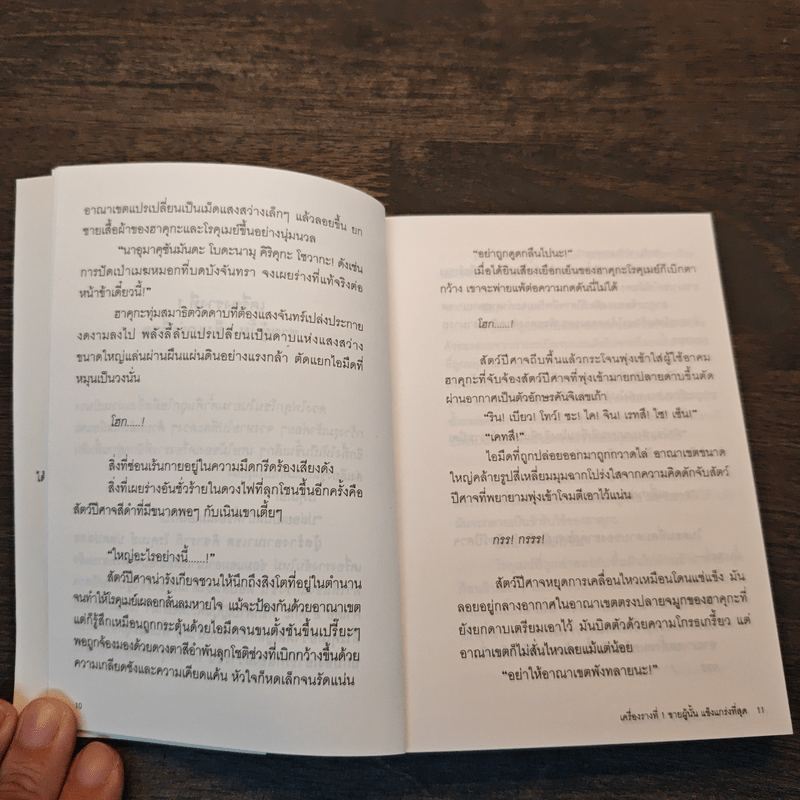 อาณาเขตแปรเปลี่ยนเป็นเม็ดแสงสว่างเล็กๆ แล้วลอยขึ้น ยก
ชายเสื้อผ้าของฮาคุกะและโรคุเมย์ขึ้นอย่างนุ่มนวล
“นาอุมาคุซันมันดะ โบดะนามุ คิริคุกะ โซวากะ! ดังเช่น
การปัดเป่าเมฆหมอกที่บดบังจันทรา จงเผยร่างที่แท้จริงต่อ
หน้าข้าเดี๋ยวนี้!”
ฮาคุกะทุ่มสมาธิตวัดดาบที่ต้องแสงจันทร์เปล่งประกาย
งดงามลงไป พลังลี้ลับแปรเปลี่ยนเป็นดาบแห่งแสงสว่าง
ขนาดใหญ่แล่นผ่านผืนแผ่นดินอย่างแรงกล้า ตัดแยกไอมืดที่
หมุนเป็นวงนั่น
โฮก.....!
สิ่งที่ซ่อนเร้นกายอยู่ในความมืดกรีดร้องเสียงดัง
สิ่งที่เผยร่างอันชั่วร้ายในดวงไฟที่ลุกโชนขึ้นอีกครั้งคือ
สัตว์ปีศาจสีดำที่มีขนาดพอๆ กับเนินเขาเตี้ยๆ
“ใหญ่อะไรอย่างนี้......!”
สัตว์ปีศาจน่ารังเกียจชวนให้นึกถึงสิงโตที่อยู่ในตำนาน
จนทำให้โรคุเมย์เผลอกลั้นลมหายใจ แม้จะป้องกันด้วยอาณาเขต
แต่ก็รู้สึกเหมือนถูกกระตุ้นด้วยไอมืดจนขนตั้งชันขึ้นเปรี๊ยะๆ
พอถูกจ้องมองด้วยดวงตาสีอำพันลุกโชติช่วงที่เบิกกว้างขึ้นด้วย
ความเกลียดชังและความเคียดแค้น หัวใจก็หดเล็กจนรัดแน่น
10
“อย่าถูกดูดกลืนไปนะ!”
เมื่อได้ยินเสียงเยือกเย็นของฮาคุกะโรคุเมย์ก็เบิกตา
กว้าง เขาจะพ่ายแพ้ต่อความกดดันนี่ไม่ได้
โฮก.....!
สัตว์ปีศาจถีบพื้นแล้วกระโจนพุ่งเข้าใส่ผู้ใช้อาคม
ฮาคุกะที่จับจ้องสัตว์ปีศาจที่พุ่งเข้ามายกปลายดาบขึ้นตัด
ผ่านอากาศเป็นตัวอักษรคันจิเลขเก้า
“ริน! เบียว! โทว์! ชะ! ไค! จิน! เรทสึ! ไซ! เซ็น!”
“เคทสึ!”
ไอมืดที่ถูกปล่อยออกมาถูกกวาดไล่ อาณาเขตขนาด
ใหญ่คล้ายรูปสี่เหลี่ยมมุมฉากโปร่งใสจากความคิดดักจับสัตว์
ปีศาจที่พยายามพุ่งเข้าโจมตีเอาไว้แน่น
กรร! กรรร!
สัตว์ปีศาจหยุดการเคลื่อนไหวเหมือนโดนแช่แข็ง มัน
ลอยอยู่กลางอากาศในอาณาเขตตรงปลายจมูกของฮาคุกะที่
ยังยกดาบเตรียมเอาไว้ มันบิดตัวด้วยความโกรธเกรี้ยว แต่
อาณาเขตก็ไม่สั่นไหวเลยแม้แต่น้อย
“อย่าให้อาณาเขตพังทลายนะ!”
เครื่องรางที่ 1 ชายผู้นั้น แข็งแกร่งที่สุด 11